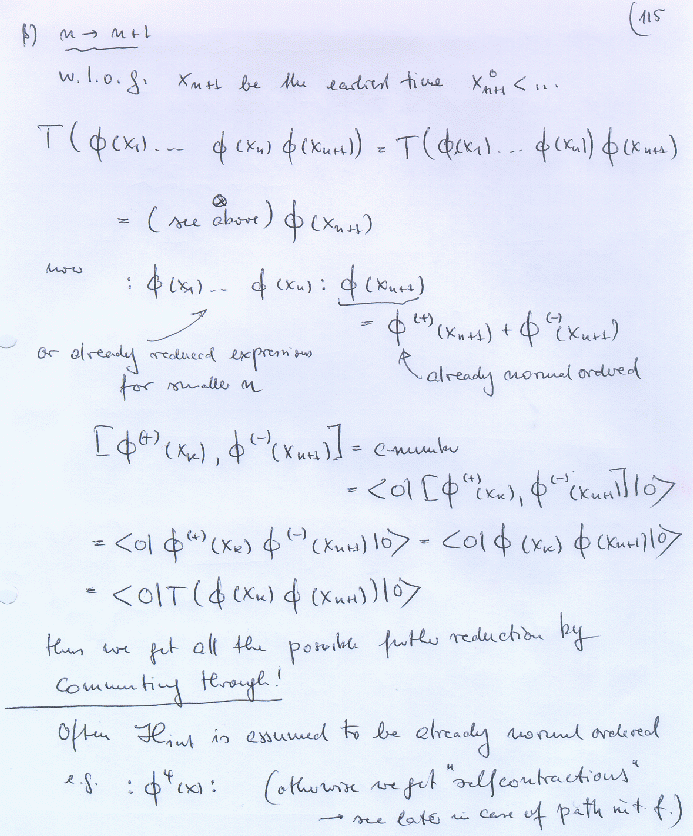 (115
β) n → n+1
w.l.o.g. x_{n+1} be the earliest time x⁰_{n+1} < ...
T(ϕ(x₁).... ϕ(xₙ) ϕ(x_{n+1})) = T(ϕ(x₁)... ϕ(xₙ)) ϕ(x_{n+1})
= (see above) ϕ(x_{n+1})
now : ϕ(x₁)... ϕ(xₙ) : ϕ(x_{n+1})
= ϕ⁽⁺⁾(x_{n+1}) + ϕ⁽⁻⁾(x_{n+1})
or already reduced expressions
for smaller n
already normal ordered
[ϕ⁽⁺⁾(x_k), ϕ⁽⁻⁾(x_{n+1})] = c-number
= <0| [ϕ⁽⁺⁾(x_k), ϕ⁽⁻⁾(x_{n+1})] |0>
= <0| ϕ⁽⁺⁾(x_k) ϕ⁽⁻⁾(x_{n+1}) |0> = <0| ϕ(x_k) ϕ(x_{n+1}) |0>
= <0|T(ϕ(x_k) ϕ(x_{n+1}))|0>
thus we get all the possible further reduction by
commuting through!
Often ℋ_int is assumed to be already normal ordered
e.g. : ϕ⁴(x) : (otherwise we get "selfcontractions"
→ see later in case of path int. f.)